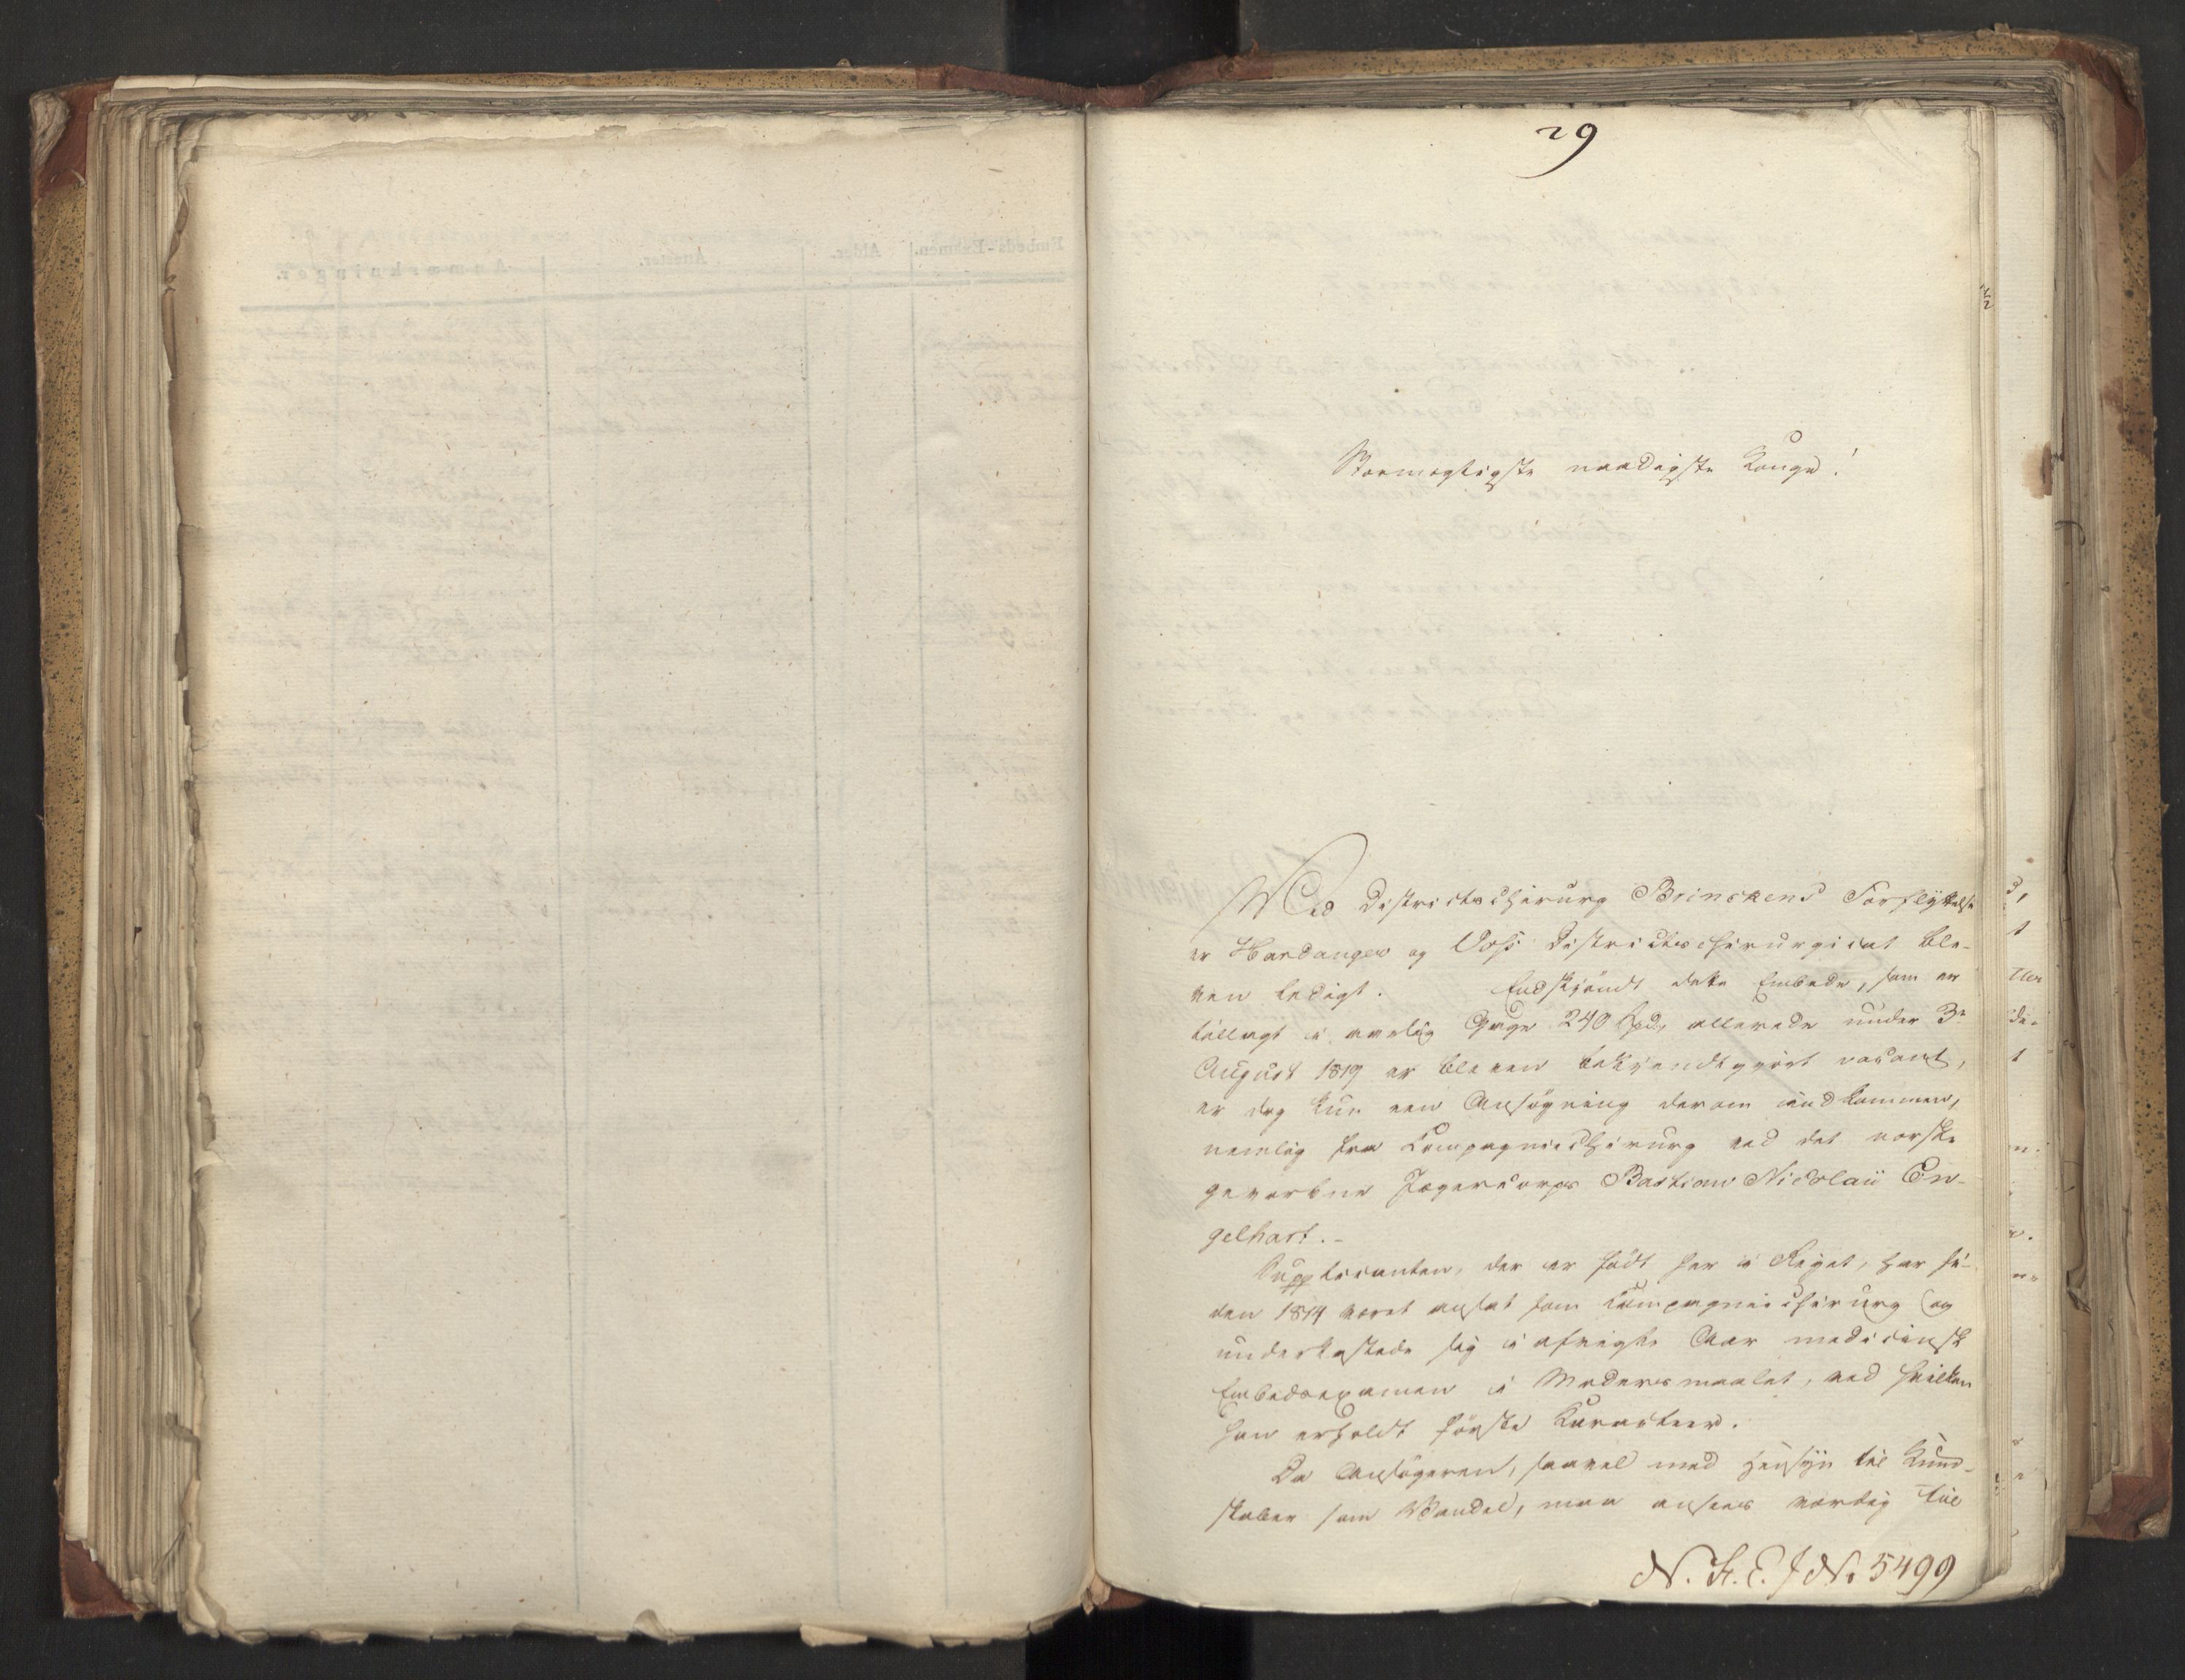 29
Stormægtigste naadigste Konge!
Ved Districtschirurg Brinckens Forflyttelse
er Hardanger og Voss Districtschirurgicat ble-
ven ledigt. Endskjöndt dette Embede, som er
tillagt i aarlig Gage 240 Spd, allerede under 3e
August 1819 er bleven bekjendtgjört vacant,
er dog kun een Ansögning derom indkommen,
nemlig fra Compagniechirurg ved det norske
gevorbne Jægercorps Bastian Nicolaii En-
gelhart.-
Supplicanten, der er födt her i Riget, har si-
den 1814 været ansat som Compagniechirurg og
underkastede sig i afvigte Aar medicinsk
Embedsexamen i Modersmaalet, ved hvilken
han erholdt förste Karacteer.
Da Ansögeren, saavel med Hensyn til Kund-
skaber som Vandel, maa ansees værdig til
N. H. E. J No 5499